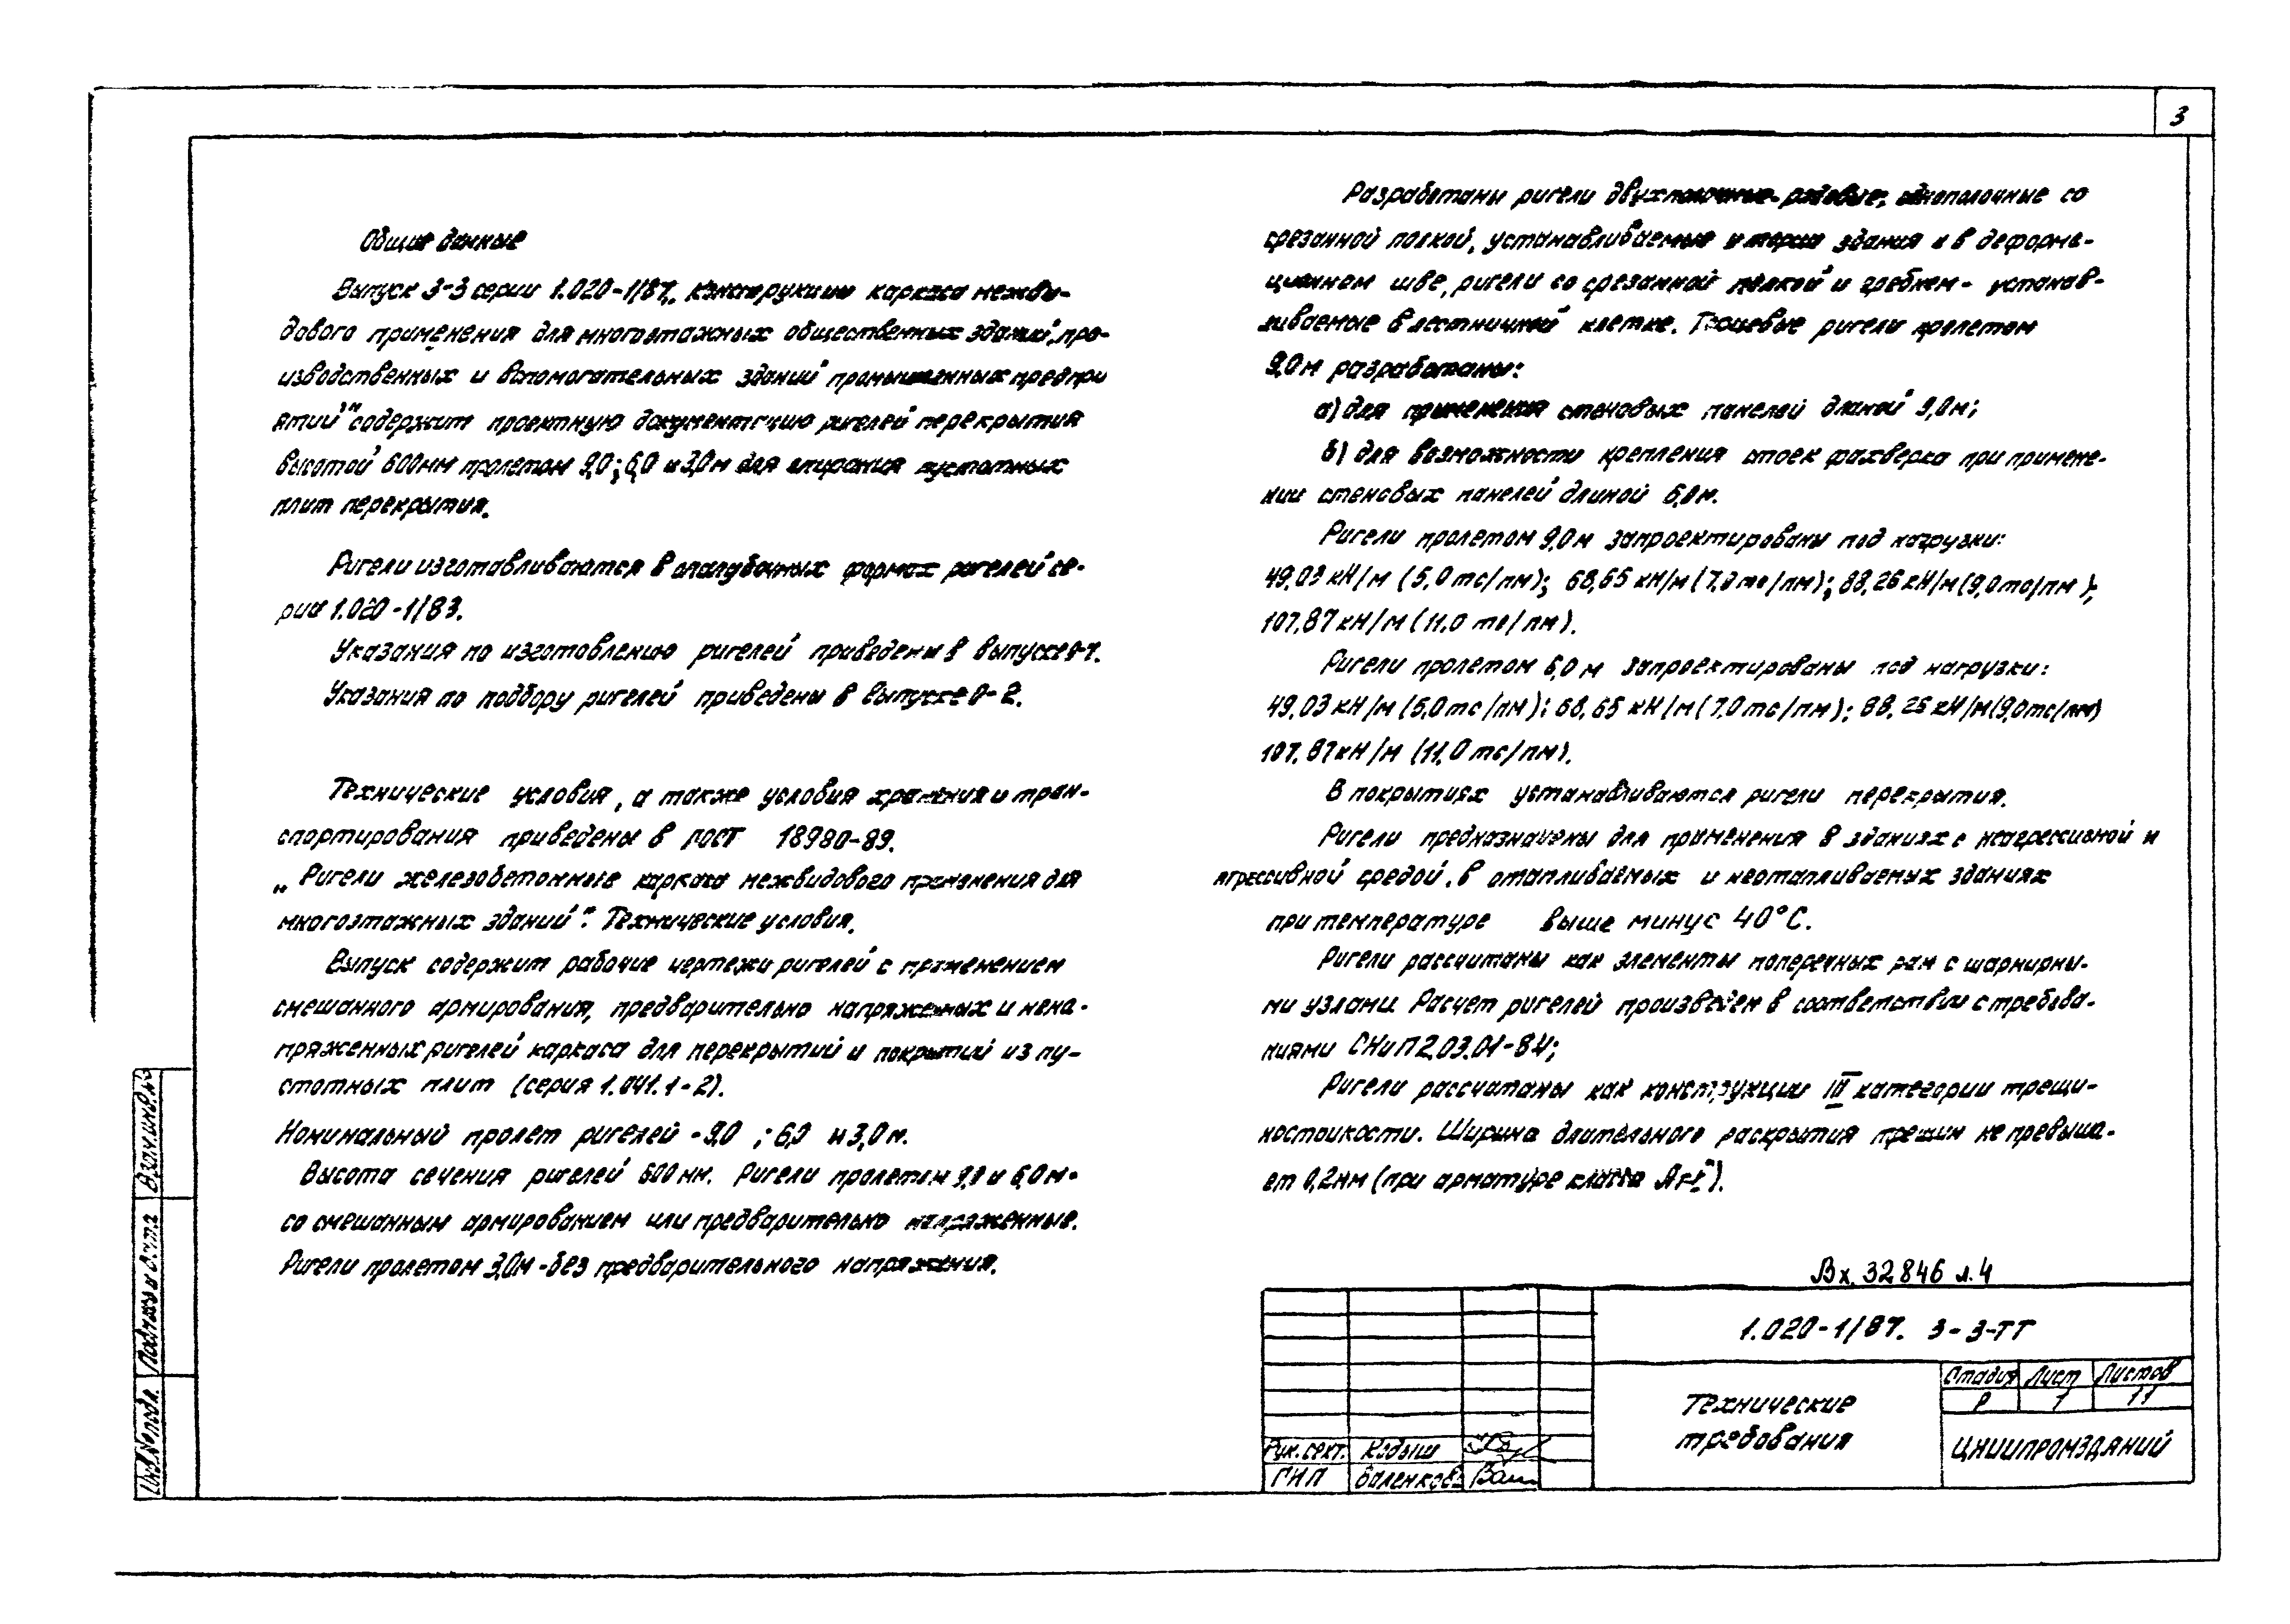 3
Общие данные
Выпуск 3-3 серии 1.020-1/87 „Конструкции каркаса межви-
дового применения для многоэтажных общественных зданий, про-
изводственных и вспомогательных зданий промышленных предпри
ятий" содержит проектную документацию ригелей перекрытия
высотой 600мм пролетом 9,0; 6,0 и 3,0м для опирания пустотных
плит перекрытия.
Ригели изготавливаются в опалубочных формах ригелей се-
рии 1.020-1/83.
Указания по изготовлению ригелей приведены в выпуске 0-7.
Указания по подбору ригелей приведены в выпуске 0-2.
Технические условия, а также условия хранения и тран-
спортирования приведены в ГОСТ 18980-89.
„Ригели железобетонные каркаса межвидового применения для
многоэтажных зданий". Технические условия.
Выпуск содержит рабочие чертежи ригелей с применением
смешанного армирования, предварительно напряженных и нена-
пряженных ригелей каркаса для перекрытий и покрытий из пу-
стотных плит (серия 1.041.1-2).
Номинальный пролет ригелей - 9,0 ; 6,0 и 3,0м.
Высота сечения ригелей 600 мм. Ригели пролетом 9,0 и 6,0м-
со смешанным армированием или предварительно напряженные.
Ригели пролетом 3,0м - без предварительного напряжения.
Разработаны ригели двухполочные- рядовые, однополочные со
срезанной полкой, устанавливаемые у торца здания и в деформа-
ционном шве, ригели со срезанной полкой и гребнем - устанав-
ливаемые в лестничной клетке. Торцевые ригели пролетом
9,0м разработаны:
а) для применения стеновых панелей длиной 9,0м;
б) для возможности крепления стоек фахверка при примене-
нии стеновых панелей длиной 6,0м.
Ригели пролетом 9,0м запроектированы под нагрузки:
49,03 кН/м (5,0 тс/пм); 68,65 кН/м (7,0 тс/пм); 88,26 кН/м (9,0тс/пм);
107,87 кН/м (11,0 тс/пм).
Ригели пролетом 6,0 м запроектированы под нагрузки:
49,03 кН/м (5,0тс/пм); 68,65 кН/м (7,0 тс/пм); 88,26 кН/м (9,0тс/пм)
107,87 кН/м (11,0 тс/пм).
В покрытиях устанавливаются ригели перекрытия.
Ригели предназначены для применения в зданиях с неагрессивной и
агрессивной средой, в отапливаемых и неотапливаемых зданиях
при температуре выше минус 40°С.
Ригели рассчитаны как элементы поперечных рам с шарнирны-
ми узлами. Расчет ригелей произведен в соответствии с требова-
ниями СНиП 2.03.01-84;
Ригели рассчитаны как конструкции III категории трещи-
ностойкости. Ширина длительного раскрытия трещин не превыша-
ет 0,2мм (при арматуре класса
Вх. 32846 л.4
1.020-1/87. 3-3-ТТ
Технические
требования
Стадия Лист Листов
Р 1 11
ЦНИИПРОМЗДАНИЙ
Рук. сект. Кодыш
ГНП
Взам.инв.№
Подпись и дата
Инв.№ подл.